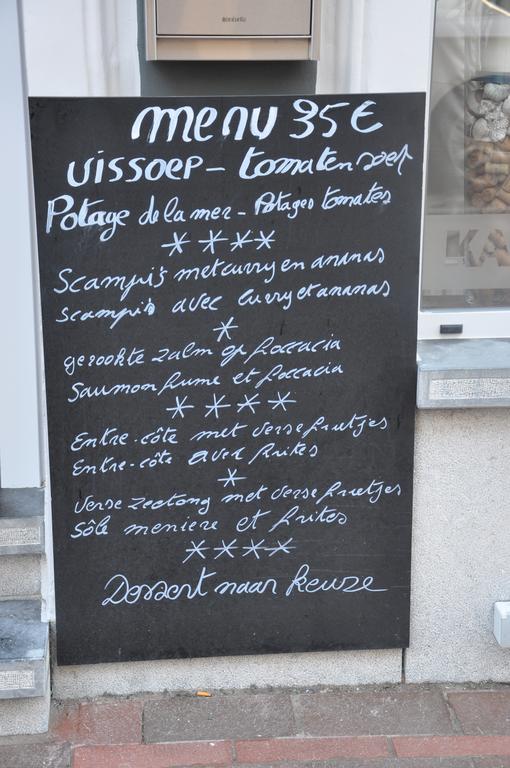 menu 35€
vissoep - tomatensoep
Potage de la mer - Potages tomates
****
Scampi's met curry en ananas
scampi's avec curry et ananas
*
gerookte zalm op foccacia
Saumon fume et foccacia
****
Entre-côte met verse frietjes
Entre-côte avec frites
*
verse zeetong met verse frietjes
Sôle meniere et frites
****
Dessert naar keuze
KA